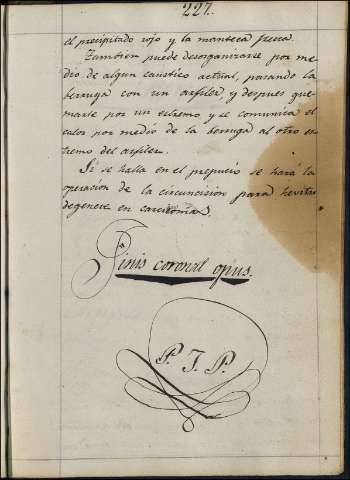 227.
el precipitado rojo y la manteca fresca.
Tambien puede desorganizarse por me-
dio de algun caustico actual, pasando la
berruga con un arfiler, y despues que-
marle por un estremo y se comunica el
calor por medio de la berruga al otro es-
tremo del arfiler.
Si se halla en el prepucio se hará la
operacion de la circuncision para hevitar
degenere en carcinoma.
Finis coronat opus.
P. J. P.